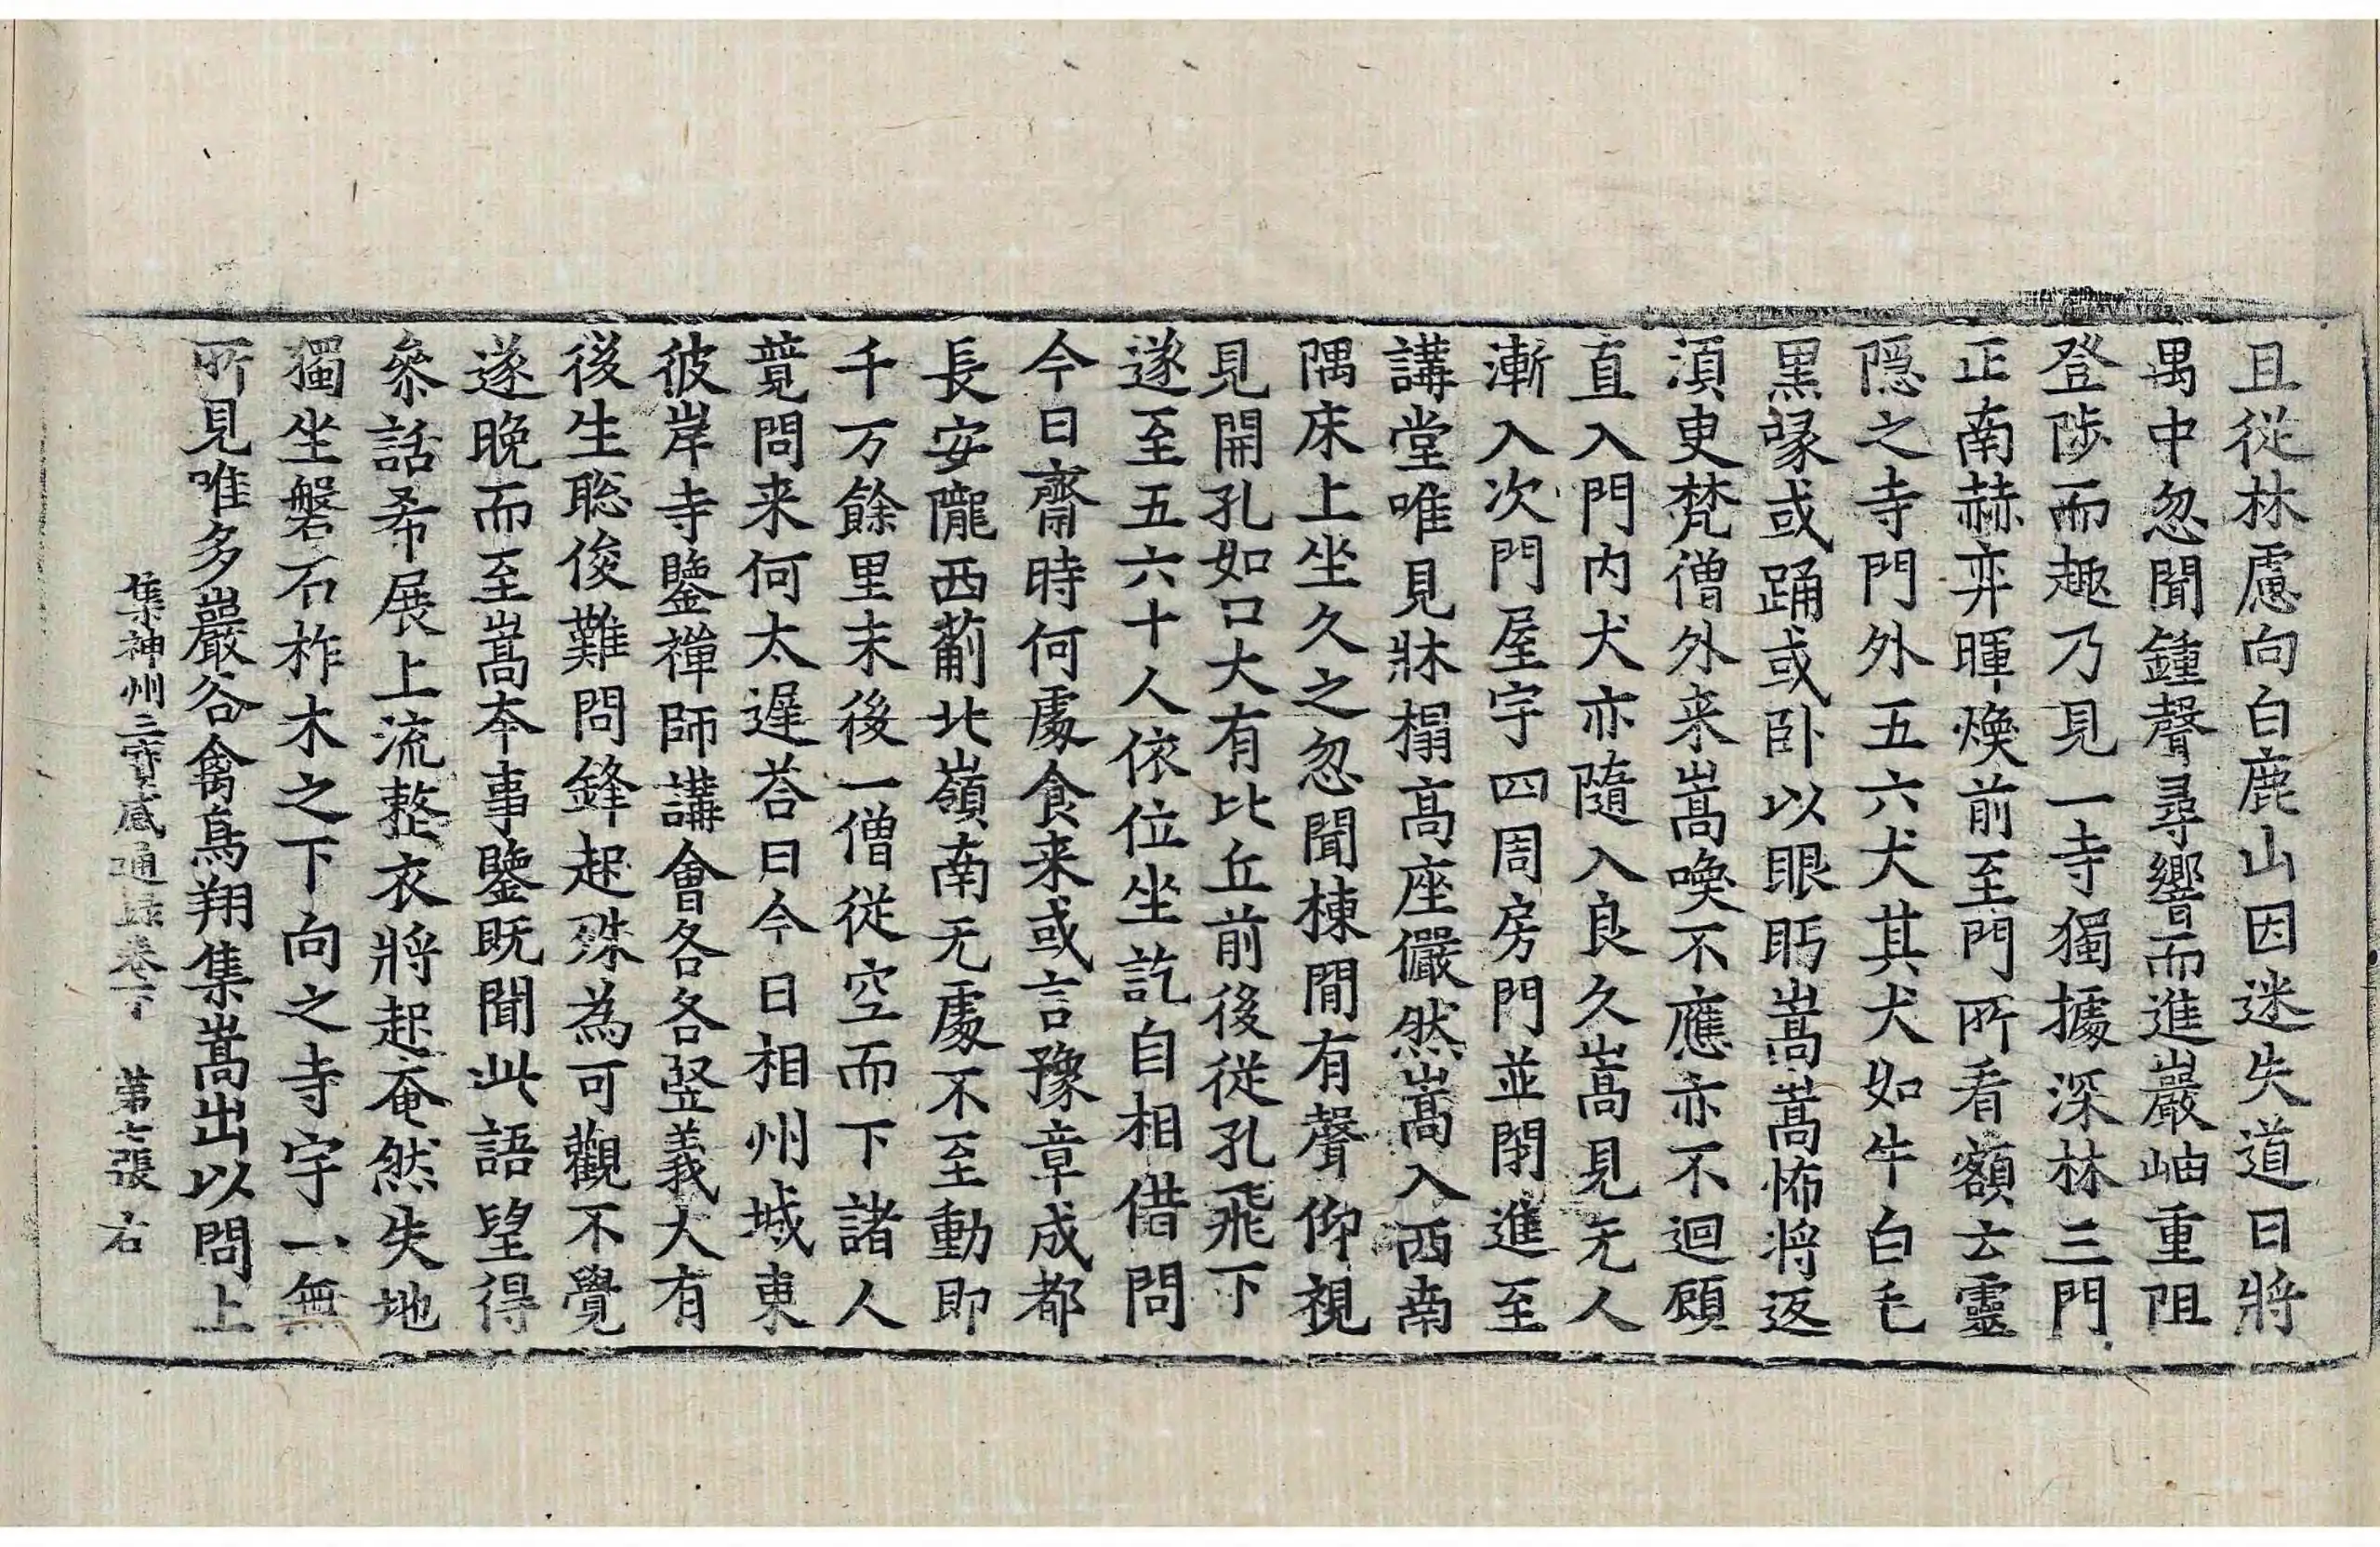 且從林慮向白鹿山因迷失道日將
禺中忽聞鍾聲尋響而進巖岫重阻
登陟而趣乃見一寺獨據深林三門
正南赫弈暉煥前至門所看額云靈
隱之寺門外五六犬其犬如牛白毛
黑喙或踊或卧以眼眄嵩嵩怖將返
湏臾梵僧外来嵩喚不應亦不迴顧
直入門内犬亦隨入良久嵩見无人
漸入次門屋宇四周房門並閉進至
講堂唯見牀榻高座儼然嵩入西南
隅床上坐久之忽聞棟閒有聲仰視
見開孔如口大有比丘前後從孔飛下
遂至五六十人依位坐訖自相借問
今日齋時何處食来或言豫章成都
長安隴西薊北嶺南无處不至動即
千万餘里末後一僧從空而下諸人
競問来何太遲荅曰今日相州城東
彼岸寺鑒禪師講會各各竪義大有
後生聡俊難問鋒起殊為可觀不覺
遂晚而至嵩夲事鑒既聞此語望得
叅話希展上流整衣將起奄然失地
獨坐磐石柞木之下向之寺宇一無
所見唯多巖谷禽鳥翔集嵩出以問上
集神州三寶感通録卷下 第七張 右